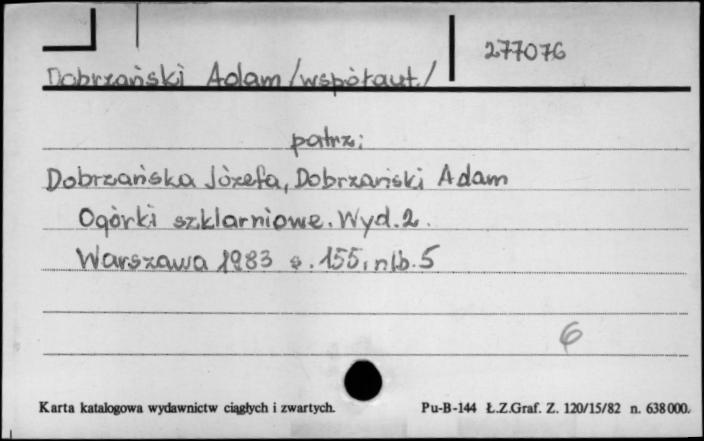 277076
Dobrzański Adam /współaut./
patrz:
Dobrzańska Józefa, Dobrzański Adam
Ogórki szklarniowe. Wyd. 2.
Warszawa 1983 s. 155, nlb. 5
6
Karta katalogowa wydawnictw ciągłych i zwartych. Pu-B-144 Ł.Z.Graf. Z. 120/15/82 n. 638000.